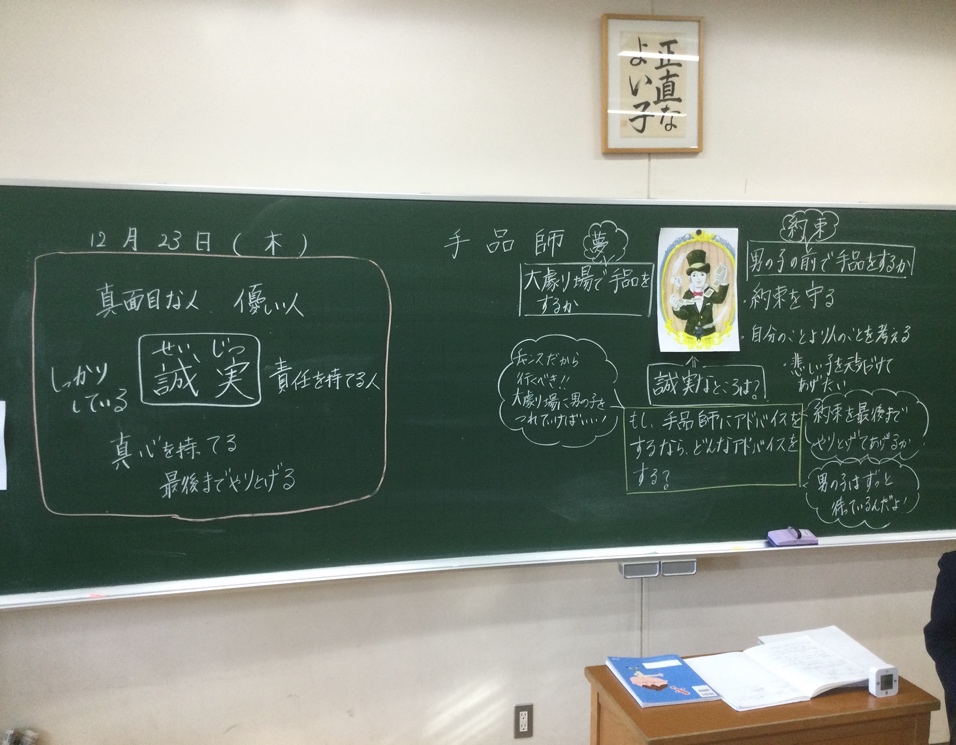 正直な
よい子
12月23日(木)
真面目な人 優しい人
せいじつ
誠実
しっかり
している
責任を持てる人
真心を持てる
最後までやりとげる
手品師
夢
大劇場で手品を
するか
チャンスだから
行くべき!!
大劇場に男の子を
つれていけばいい!
誠実なところは?
もし、手品師にアドバイスを
するなら、どんなアドバイスを
する?
約束
男の子の前で手品をするか
・約束を守る
・自分のことより人のことを考える
・悲しい子を元気づけて
あげたい
約束を最後まで
やりとげてあげるか
男の子はずっと
待っているんだよ!